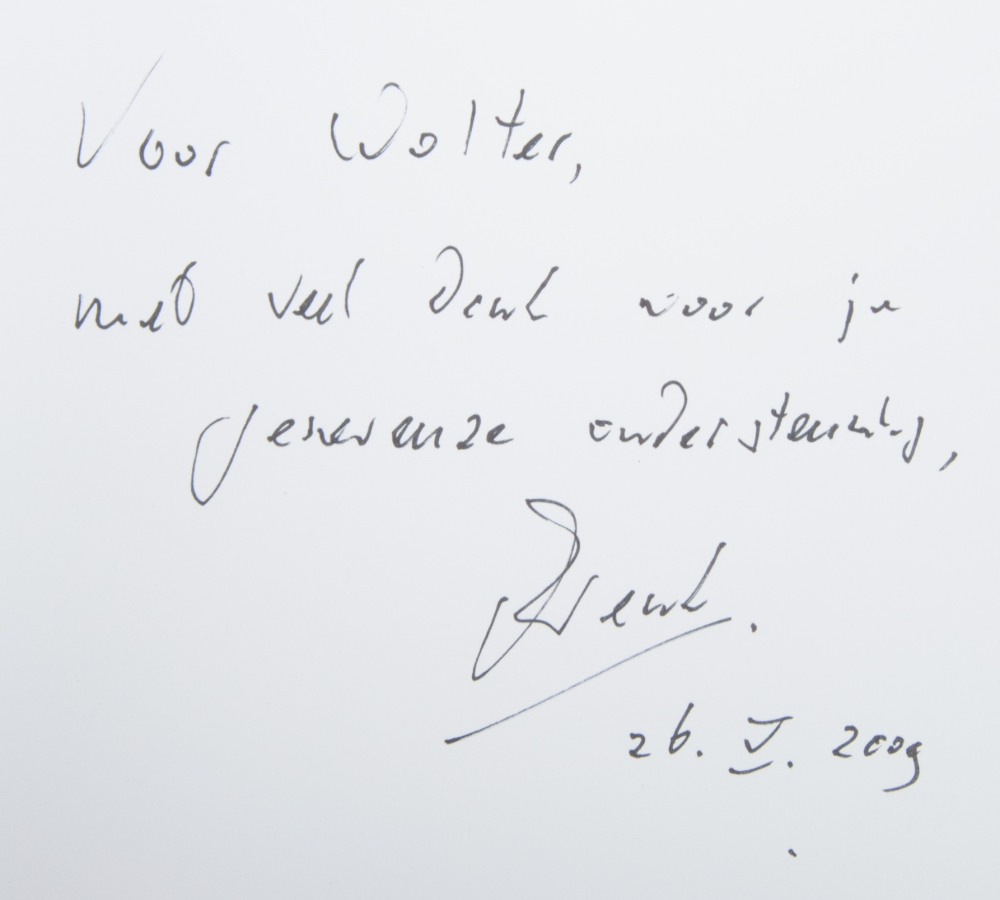 Voor Wolter,
met veel dank voor je
ondersteuning,
26. V. 2009